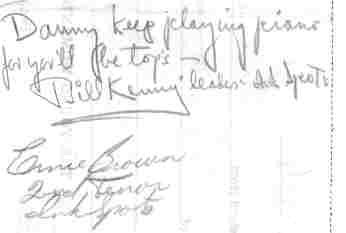 Danny keep playing piano
for you'll be tops –
Bill Kenny leader Ink Spots
Ernie Brown
2nd tenor
Ink Spots